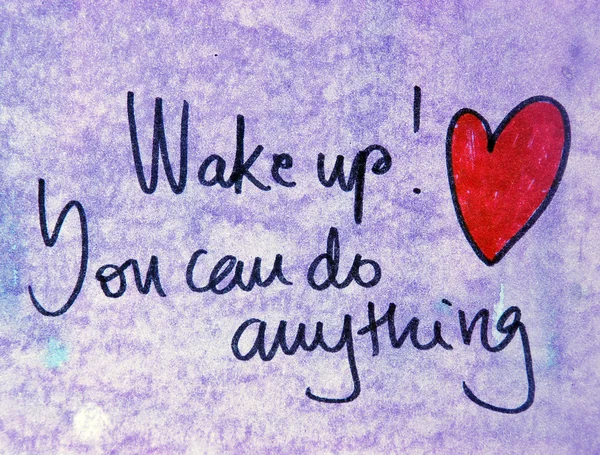 Wake up!
You can do
anything